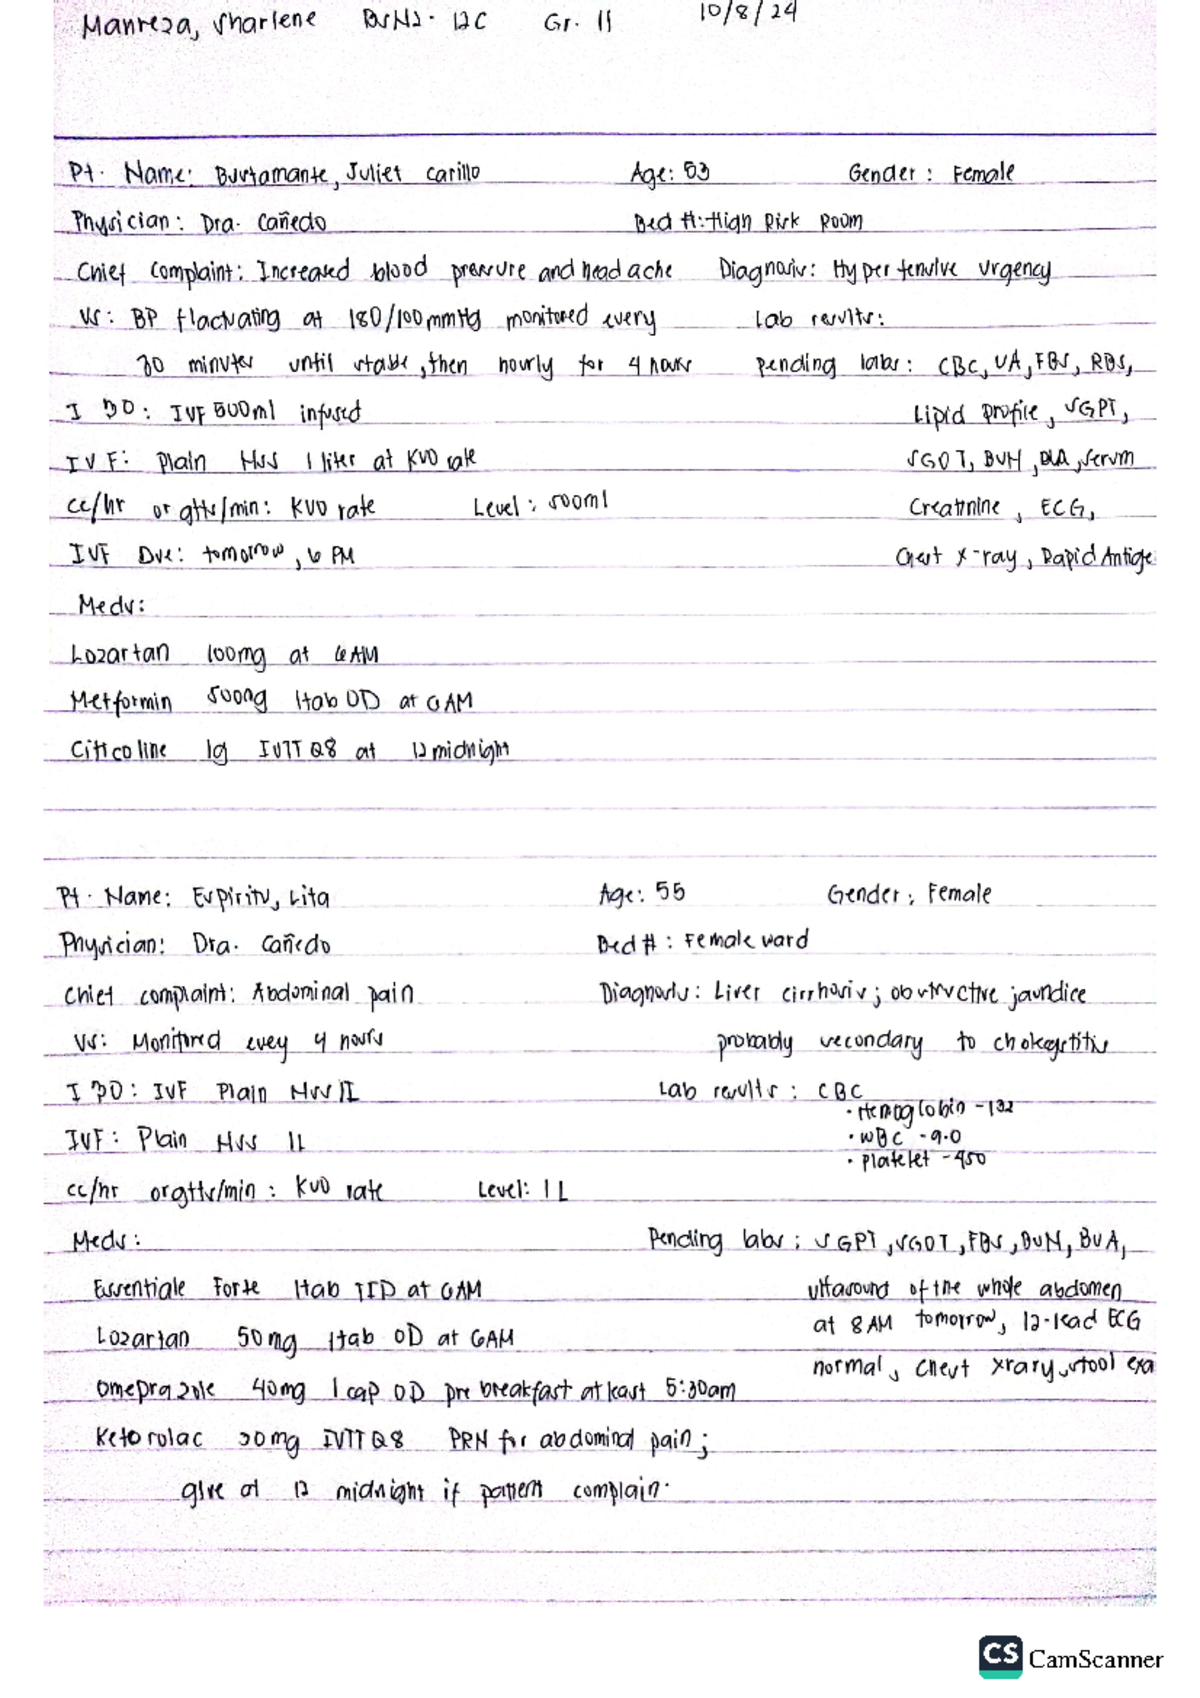 Manreza, Sharlene BSN2-12C Gr. 11 10/8/24
Pt. Name: Bustamante, Juliet Carillo Age: 53 Gender: Female
Physician: Dra. Cañedo Bed #: High Risk Room
Chief Complaint: Increased blood pressure and headache Diagnosis: Hypertensive Urgency
VS: BP flactuating at 180/100mmHg monitored every Lab results:
30 minutes until stable, then hourly for 4 hours Pending labs: CBC, UA, FBS, RBS,
I & O: IVF 500ml infused Lipid profile, SGPT,
IVF: Plain NSS 1 liter at KVO rate SGOT, BUN, BUA, Serum
cc/hr or gtts/min: KVO rate Level: 500ml Creatinine, ECG,
IVF Due: tomorrow, 6 PM Chest x-ray, Rapid Antige
Meds:
Lozartan 100mg at 6AM
Metformin 500mg 1tab OD at 6AM
Citicoline 1g IVTT Q8 at 12midnight
Pt. Name: Espiritu, Lita Age: 55 Gender: Female
Physician: Dra. Cañedo Bed #: Female ward
Chief complaint: Abdominal pain Diagnosis: Liver cirrhosis; obstructive jaundice
VS: Monitored evey 4 hours probably secondary to
I & O: IVF Plain NSS 1L Lab results: CBC
• Hemoglobin - 132
IVF: Plain NSS 1L • WBC - 9.0
• Platelet - 450
cc/hr or gtts/min: KVO rate Level: 1L
Meds: Pending labs: SGPT, SGOT, FBS, BUN, BUA,
Essentiale Forte 1tab TID at 6AM ultasound of the whole abdomen
Lozartan 50mg 1tab OD at 6AM at 8AM tomorrow, 12-lead ECG
normal, Chest xray, stool exa
Omeprazole 40mg 1cap OD pre breakfast at least 5:30am
Ketorolac 30mg IVTT Q8 PRN for abdominal pain;
give at 12 midnight if patient complain.
CS CamScanner